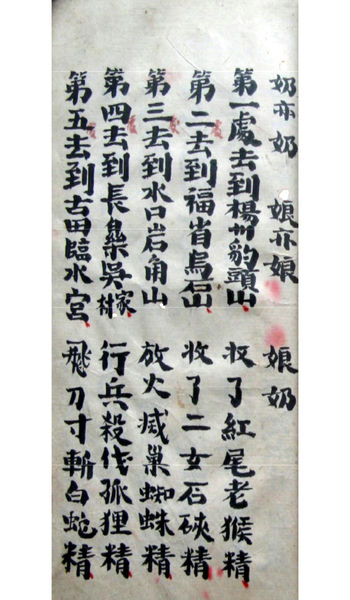 奶亦奶 娘亦娘 娘奶
第一處去到楊州豹頭山 收了紅尾老猴精
第二處去到福省烏石山 收了二女石硤精
第三處去到水口岩角山 放火烕巢蜘蛛精
第四處去到長樂吳家村 行兵殺伐孤狸精
第五處去到古田臨水宮 飛刀寸斬白蛇精